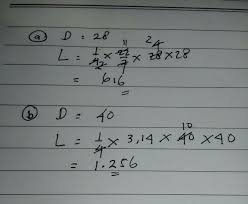 (a) D = 28
L = 1/4 × 22/7 × 28 × 28
= 616
(b) D = 40
L = 1/4 × 3,14 × 40 × 40
= 1.256